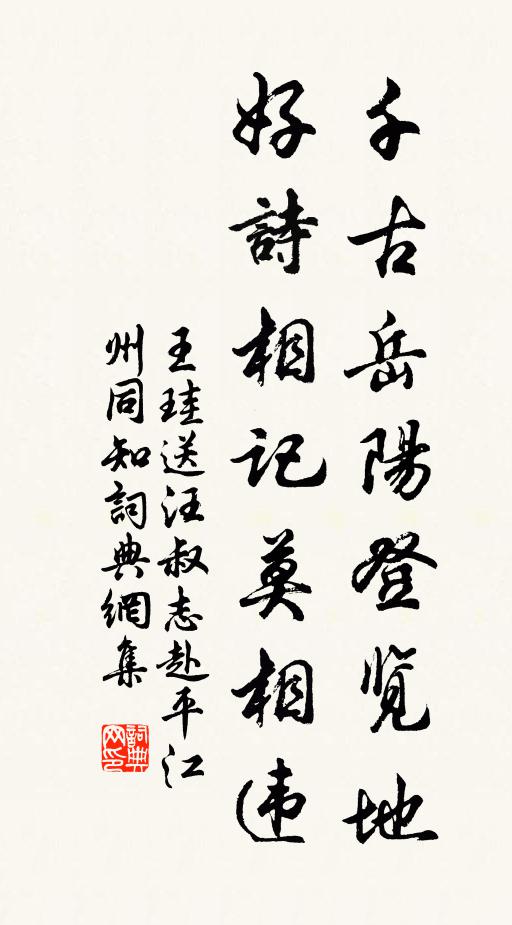 千古岳陽登览地
好詩相記莫相违
王珪送汪叔志赴平江
州同知詞典網集
詞典网印